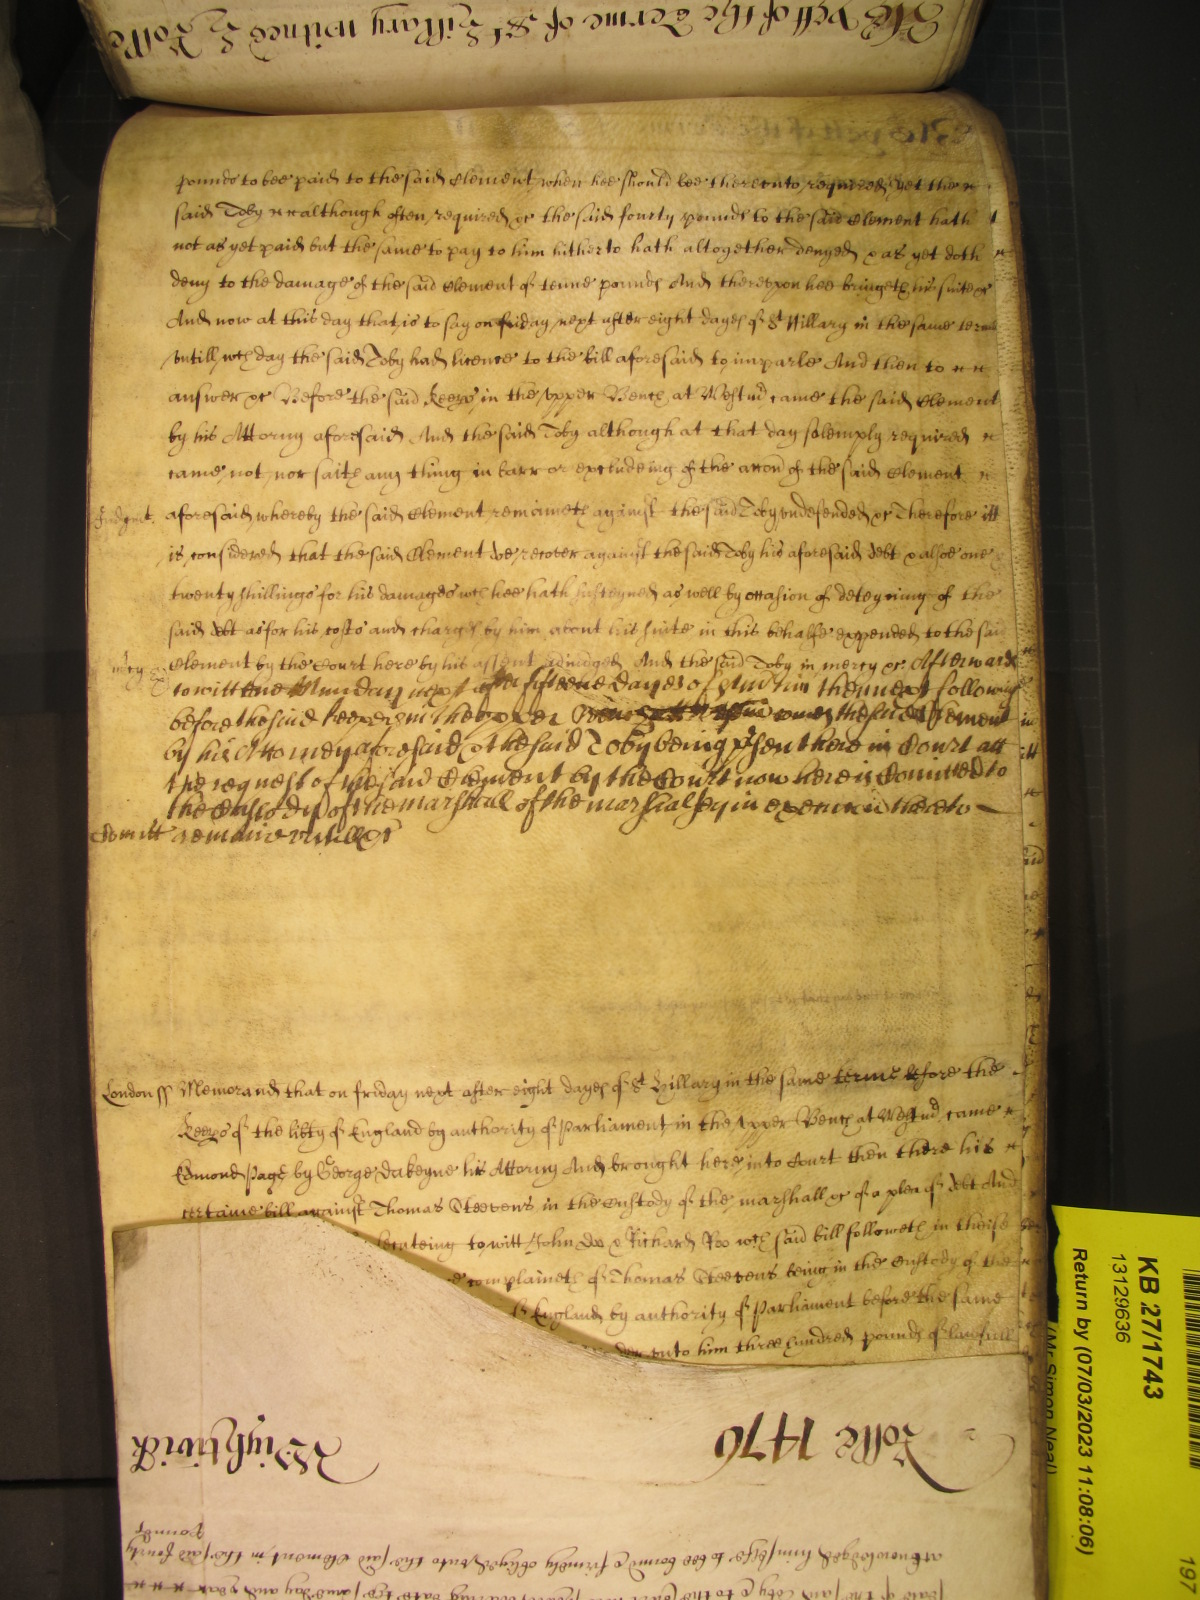 The xxth of the Terme of St Hillary witnes H Rolle
pounds to bee paid to the said Clement when hee should bee thereunto required yet the
said Toby although often required &c the said fourty pounds to the said Clement hath
not as yet paid but the same to pay to him hitherto hath altogether denyed & as yet doth
deny to the damage of the said Clement of tenne pounds And thereupon hee bringeth his suite &c
And now at this day that is to say on friday next after eight dayes of St Hillary in the same terme
untill wch day the said Toby had licence to the bill aforesaid to imparle And then to
answer &c Before the said Keeprs in the upper Bench at Westmr came the said Clement
by his Attorny aforesaid And the said Toby although at that day solemply required
came not nor saith any thing in barr or excludeing of the accon of the said Clement
Judgmt. aforesaid whereby the said Clement remaineth against the said Toby undefended &c Therefore itt
is considered that the said Clement doe recover against the said Toby his aforesaid debt & alsoe one
twenty shillings for his damages wch hee hath susteyned as well by occasion of deteyning of the
said debt as for his costs and charges by him about his suite in this behalfe expended to the said
mercy Clement by the Court here by his assent adiudged And the said Toby in mercy &c Afterwards
to witt one Munday next after fifteene dayes of Martin then next following
before the said Keepers in the upper Bench came the said Clement
by his Attorney aforesaid & the said Toby being psent here in Court att
the request of the said Clement by the Court now here is Comitted to
the Custody of the marshall of the marshalsey in execucon there to
Comitt remaine untill &c
London ss Memorand that on friday next after eight dayes of St Hillary in the same terme before the
Keeprs of the libty of England by authority of Parliament in the upper Bench at Westmr came
Edmond Page by George Dakeyne his Attorny And brought here into Court then there his
certaine bill against Thomas Steevens in the Custody of the marshall &c of a plea of debt And
to witt John Doe & Richard Roo wch said bill followeth in theise
complaineth of Thomas Steevens being in the Custody of the
of England by authority of Parliament before the same
unto him three hundred pounds of lawfull
Rolle 1476 Wightwick
acknowledged himselfe to bee bound & firmely obliged unto the said Clement in the said fourty
pounds
KB 27/1743
13129636
Return by (07/03/2023 11:08:06)
(Mr Simon Neal)
197